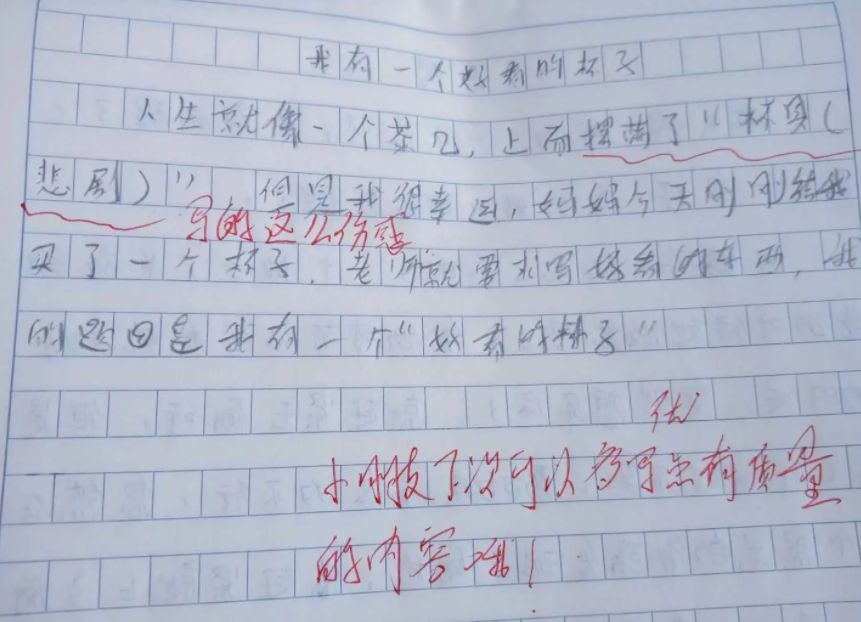 我有一个好看的杯子
人生就像一个茶几，上面摆满了“杯具（
悲剧）” 但是我很幸运，妈妈今天刚刚给我
写的这么伤感
买了一个杯子，老师就要求写好看的东西，我
的题目是我有一个“好看的杯子”
优
下次可以多写点有质量
的内容哦！